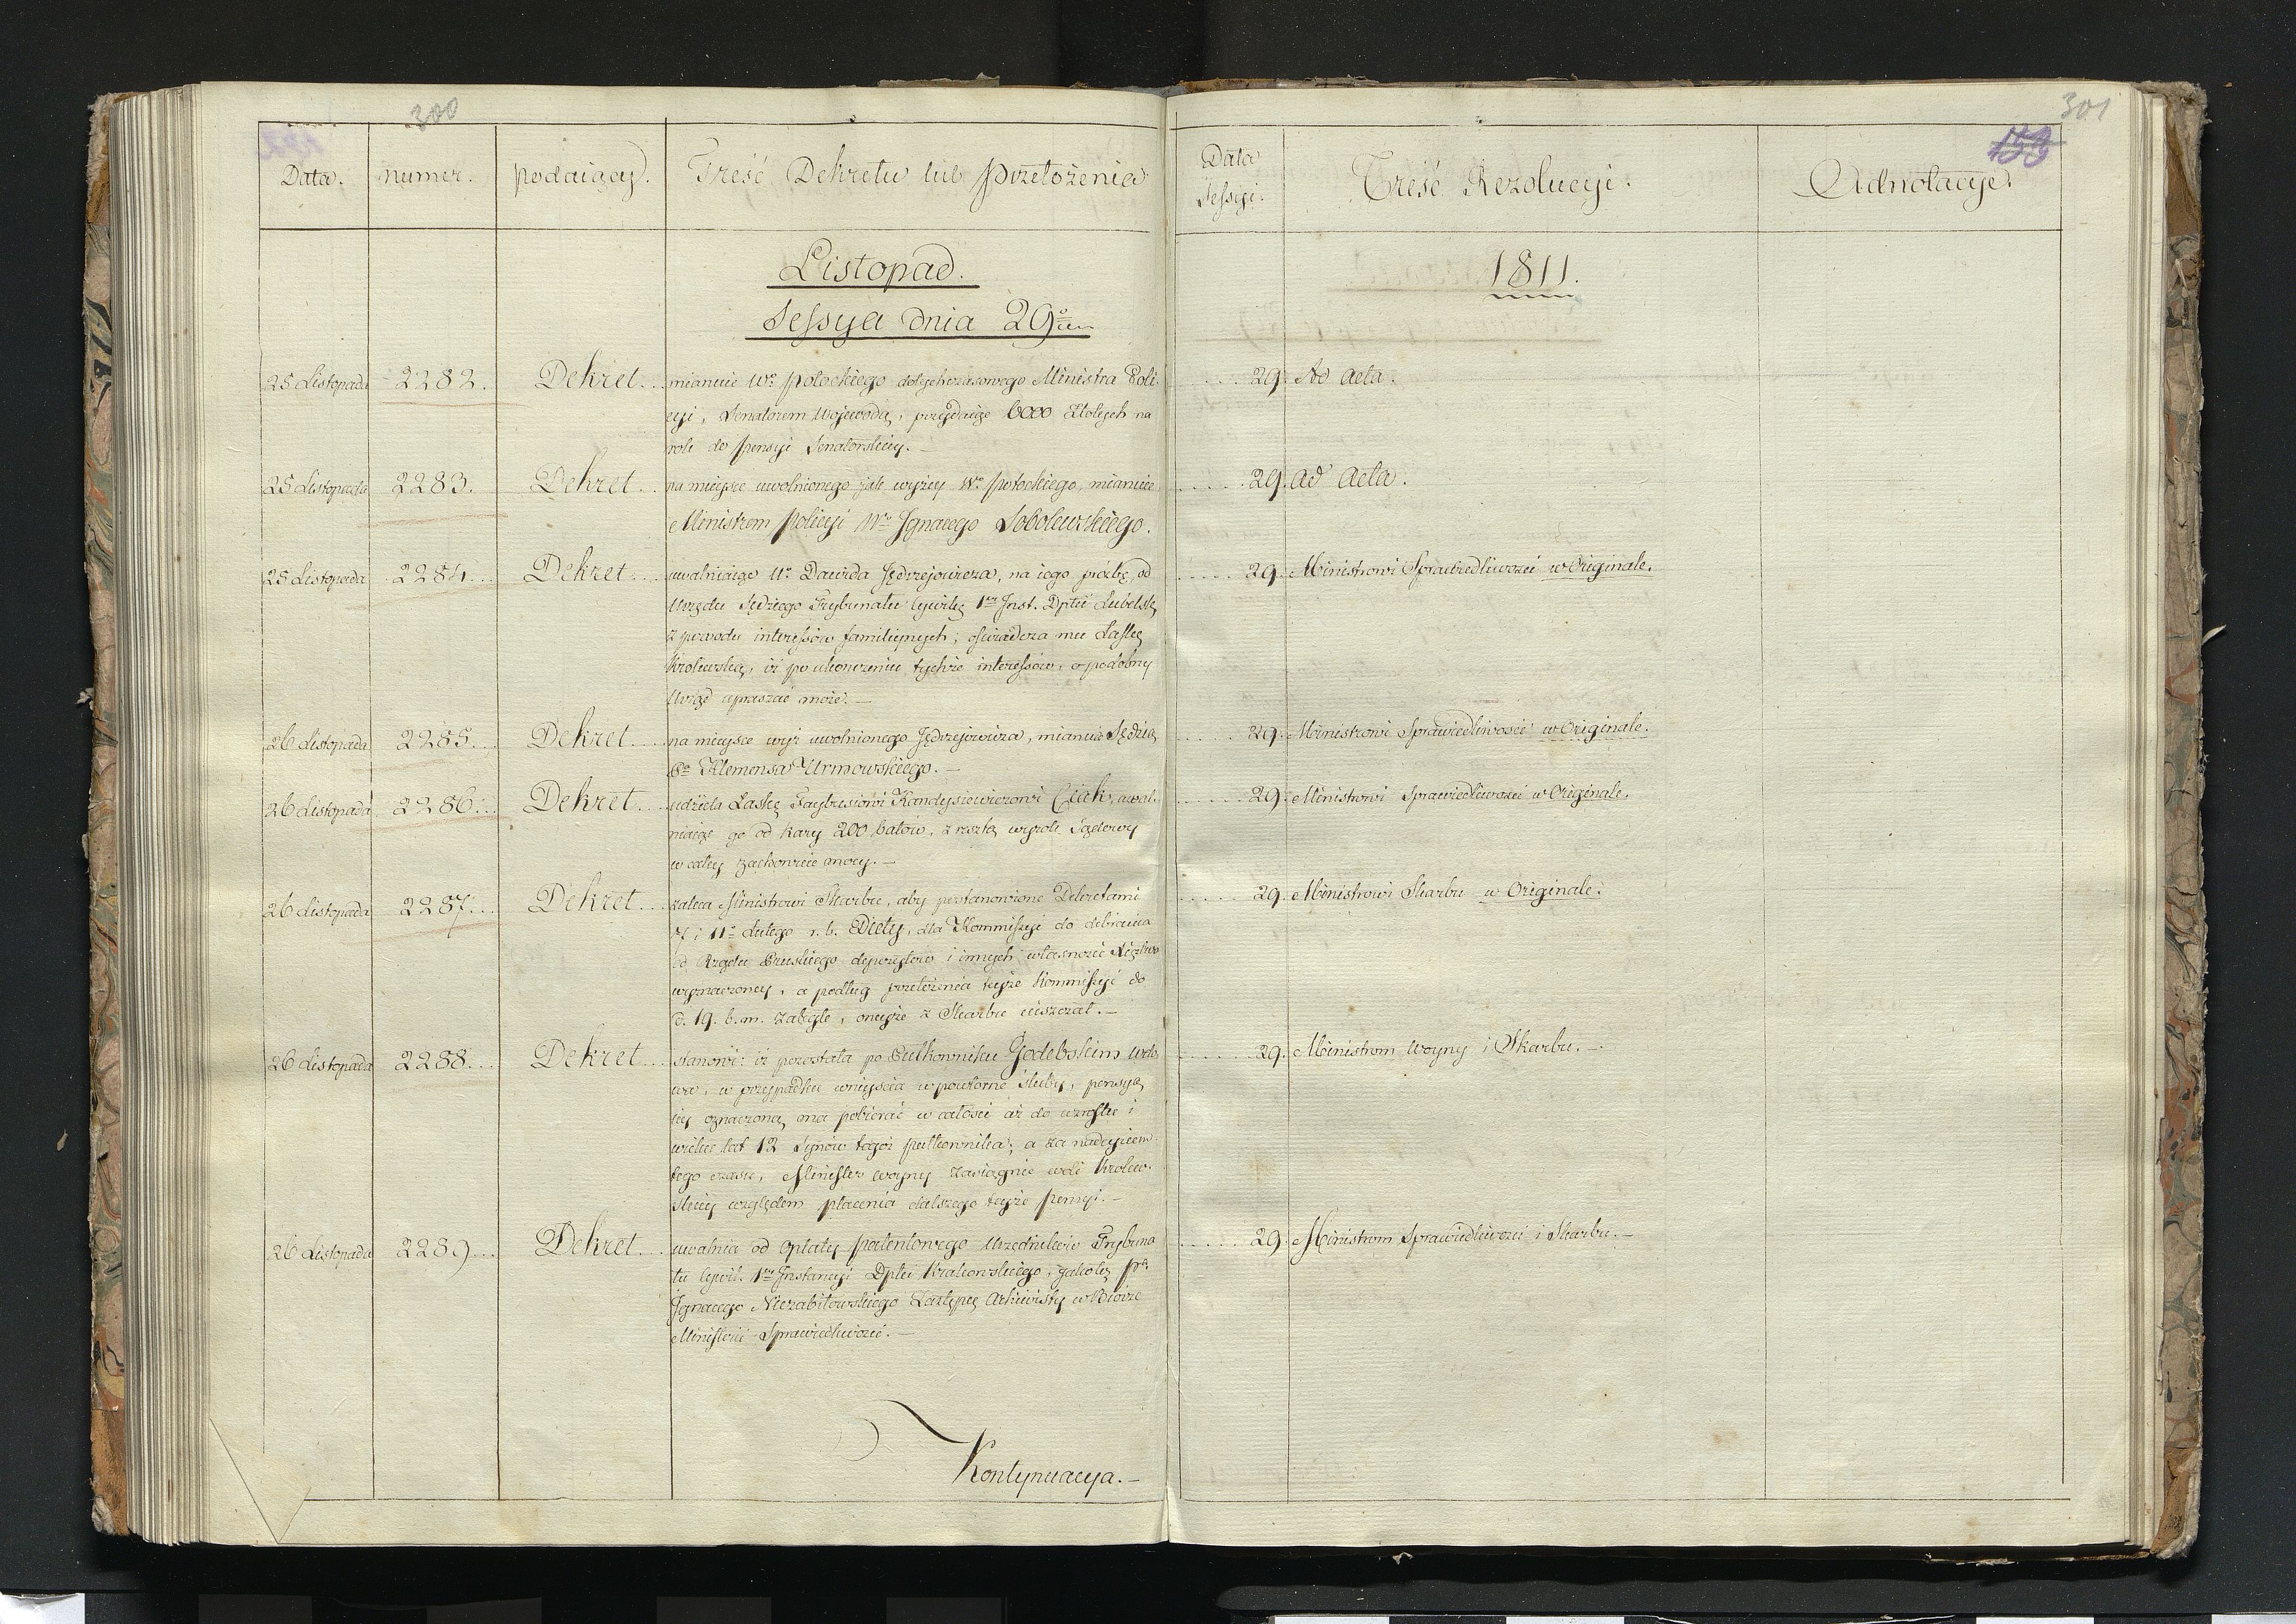 300
Data.
numer.
podaiący.
Treść Dekretu lub przełożenia
Listopad.
Sessya dnia 29º
25 Listopada 2282. Dekret... mianuie Wº Potockiego dotychczasowego Ministra Poli-
cyi, Senatorem Woiewodą, przydaiąc 6000 Złotych na
rok do pensyi Senatorskiey. –
25 Listopada 2283. Dekret... na mieysce uwolnionego jak wyżey Wº Potockiego, mianuie
Ministrem Policyi Wº Ignacego Sobolewskiego.
25 Listopada 2284... Dekret... uwalniaiąc Wº Dawida Jędrzejowicza, na iego prożbę, od
Urzędu Sędziego Trybunału Cywilg 1ey Inst. Dptu Lubelsk
z powodu interessów familiynych; oświadcza mu Łaskę
Krolewską, iż po ukończeniu tychże interessów, o podobny
Urząd upraszać może. –
26 Listopada 2285... Dekret... na mieysce wyż uwolnionego Jędrzejowicza, mianuie Sędzią
Pº Klemensa Urmowskiego. –
26 Listopada 2286... Dekret... udziela Łaskę Kandysiewiczowi uwal-
niaiąc go od kary 200 batów, z resztą wyrok Sądowy
w całey zachowuie mocy. –
26 Listopada 2287... Dekret... zaleca Ministrowi Skarbu, aby postanowione Dekretami
7 i 11º Lutego r. b. Diety, dla Kommissyi do odbierania
od Rządu Pruskiego depozytów i innych własności Xięstwa
wyznaczoney, a podług przełożenia teyże Kommissyi do
d. 19. b. m. zaległe, oneyże z Skarbu uiszczał. –
26 Listopada 2288... Dekret... stanowi: iż pozostała po Pułkowniku Godebskim wdo-
wa, w przypadku wniyścia w powtorne śluby, pensyą
iey oznaczoną ma pobierać w całości aż do wzrostu i
wieku lat 12 Synów tegoż Pułkownika; a za nadeyściem
tego czasu, Minister Woyny zasiągnie woli Krolew-
skiey względem płacenia dalszego teyże pensyi. –
26 Listopada 2289... Dekret... uwalnia od opłaty patentowego Urzędników Trybuna-
łu Cywil. 1ey Instancyi Dptu Krakowskiego, jakoteż Pª
Ignacego Niezabitowskiego Zastępcę Archiwisty w Biórze
Ministra Sprawiedliwości. –
Kontynuacya. –
301
153
Data
Sessyi.
Treść Rezolucyi.
Adnotacye.
1811.
29. Ad Acta.
29. Ad Acta.
29. Ministrowi Sprawiedliwości w Originale.
29. Ministrowi Sprawiedliwości w Originale.
29. Ministrowi Sprawiedliwości w Originale.
29. Ministrowi Skarbu w Originale.
29. Ministrom Woyny i Skarbu. –
29. Ministrom Sprawiedliwości i Skarbu. –